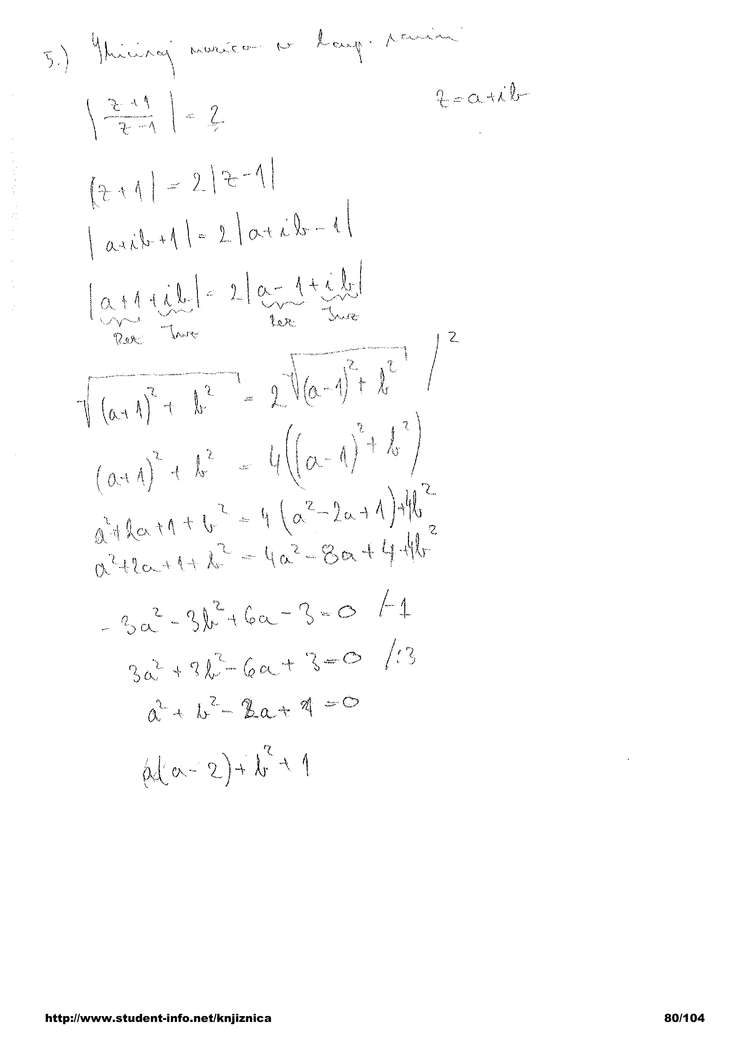 5.) Skiciraj množico v komp. ravnini
|z+1 / z-1| = 2 z=a+ib
|z+1| = 2|z-1|
|a+ib+1| = 2|a+ib-1|
|a+1+ib| = 2|a-1+ib|
Rez Imz Rez Imz
√((a+1)² + b²) = 2√((a-1)² + b²) /²
(a+1)² + b² = 4((a-1)² + b²)
a²+2a+1+b² = 4(a²-2a+1)+4b²
a²+2a+1+b² = 4a²-8a+4+4b²
-3a²-3b²+6a-3=0 /-1
3a²+3b²-6a+3=0 /:3
a²+b²-2a+1=0
a(a-2)+b²+1
http://www.student-info.net/knjiznica 80/104